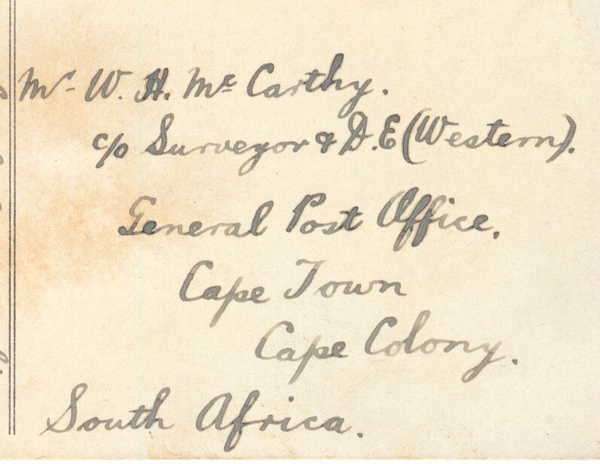 Mr. W. H. Mc Carthy.
c/o Surveyor & D.E (Western).
General Post Office.
Cape Town
Cape Colony.
South Africa.